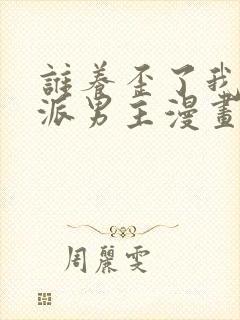 誰養歪了我
派男主漫畫
周麗雯